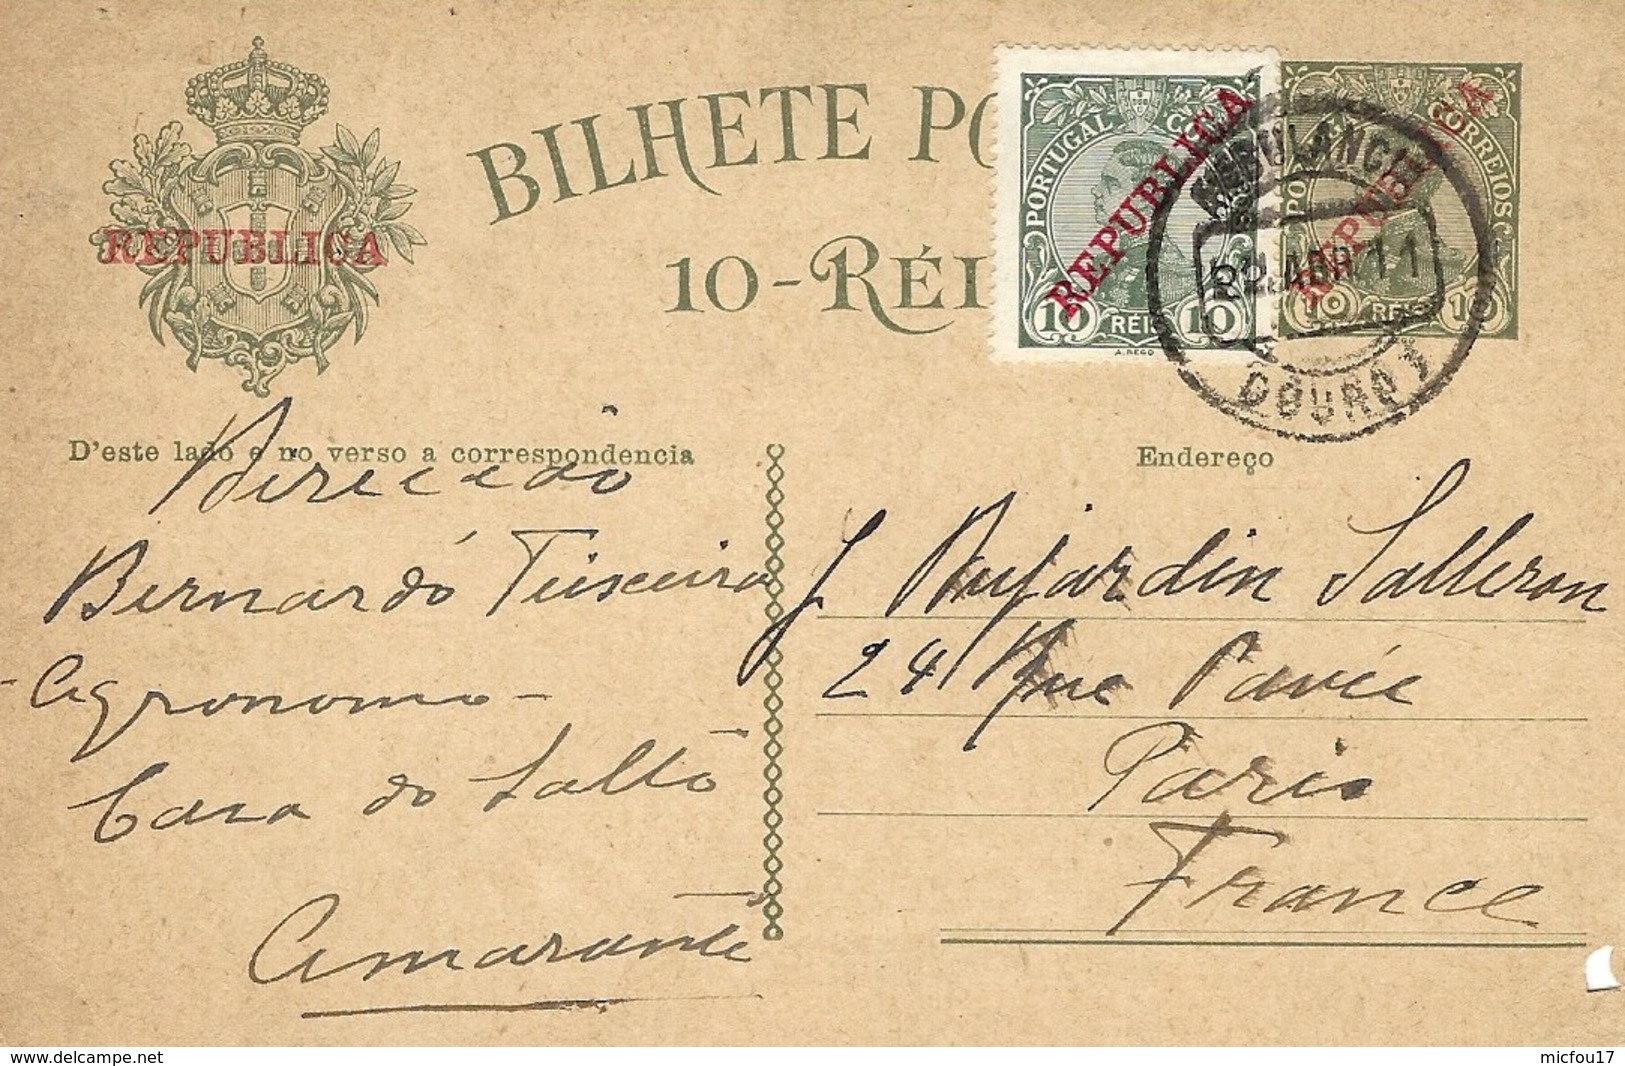 BILHETE PO
10-RÉI
REPUBLICA
PORTUGAL
REPUBLICA
10 RÉIS 10
A. REGO
CORREIOS
REPUBLICA
10 REIS 10
AMBULANCIA
ABR 11
DOURO
D'este lado e no verso a correspondencia
Endereço
Direccão
Bernardo Teixeira
- Agronomo -
Casa do Salto
Amarante
J Dujardin Salleron
24 Rue Pavée
Paris
France
delcampe.net
micfou17